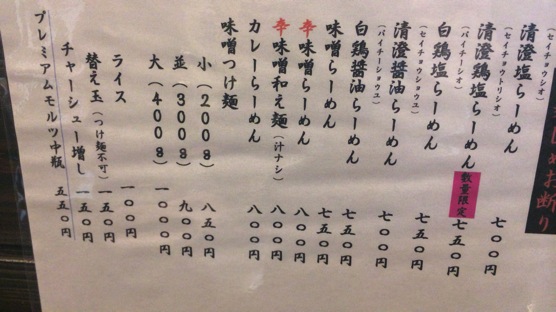 お断り
(セイチョウシオ)
清澄塩らーめん 七〇〇円
(セイチョウトリシオ)
清澄鶏塩らーめん 数量限定 七五〇円
(パイチーシオ)
白鶏塩らーめん 七五〇円
(セイチョウショウユ)
清澄醤油らーめん 七〇〇円
(パイチーショウユ)
白鶏醤油らーめん 七五〇円
味噌らーめん 七五〇円
辛味噌らーめん 八〇〇円
辛味噌和え麺(汁ナシ) 八〇〇円
カレーらーめん 八〇〇円
味噌つけ麺
小(200g) 八五〇円
並(300g) 九〇〇円
大(400g) 一〇〇〇円
ライス 一〇〇円
替え玉(つけ麺不可) 一五〇円
チャーシュー増し 一五〇円
プレミアムモルツ中瓶 五五〇円